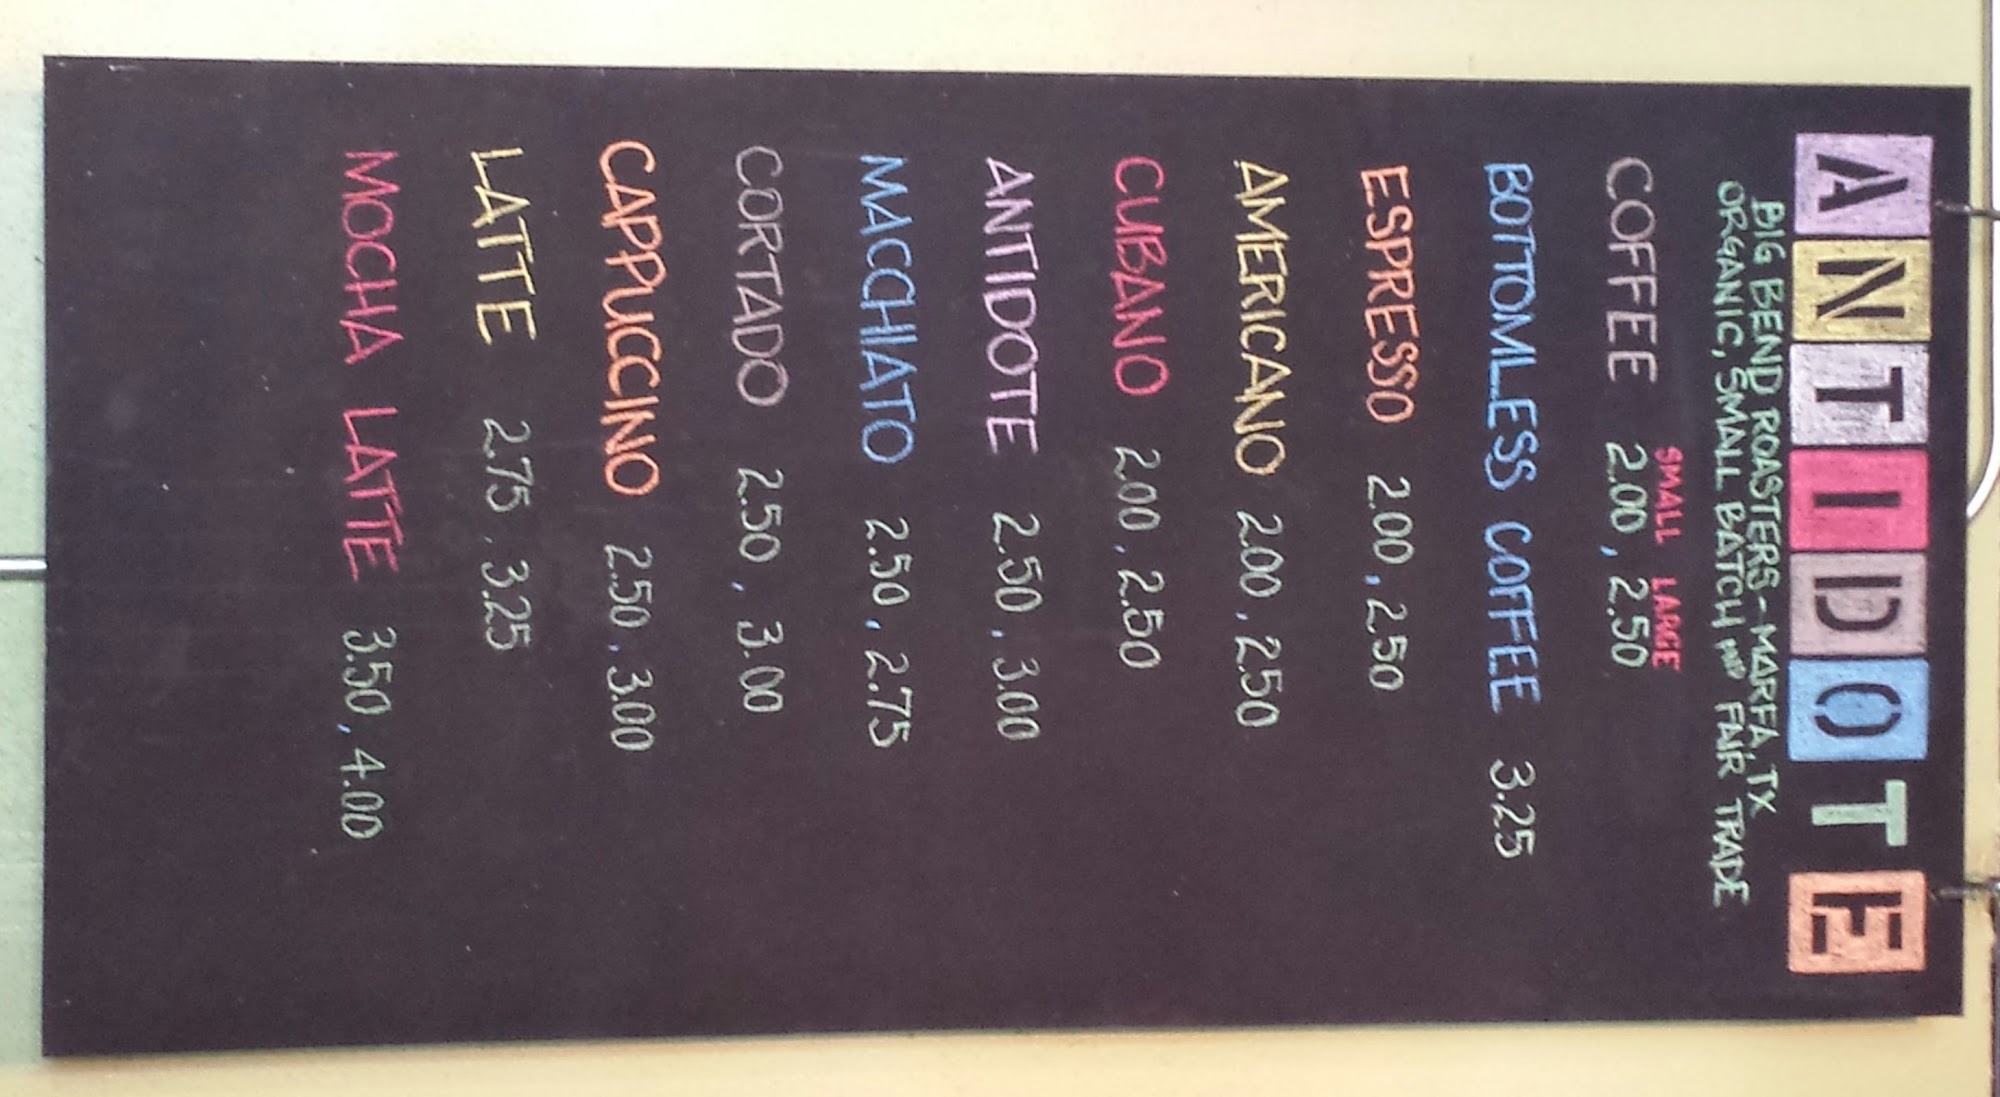 ANTIDOTE
BIG BEND ROASTERS-MARFA, TX
ORGANIC, SMALL BATCH AND FAIR TRADE
SMALL LARGE
COFFEE 2.00, 2.50
BOTTOMLESS COFFEE 3.25
ESPRESSO 2.00, 2.50
AMERICANO 2.00, 2.50
CUBANO 2.00, 2.50
ANTIDOTE 2.50, 3.00
MACCHIATO 2.50, 2.75
CORTADO 2.50, 3.00
CAPPUCCINO 2.50, 3.00
LATTE 2.75, 3.25
MOCHA LATTE 3.50, 4.00